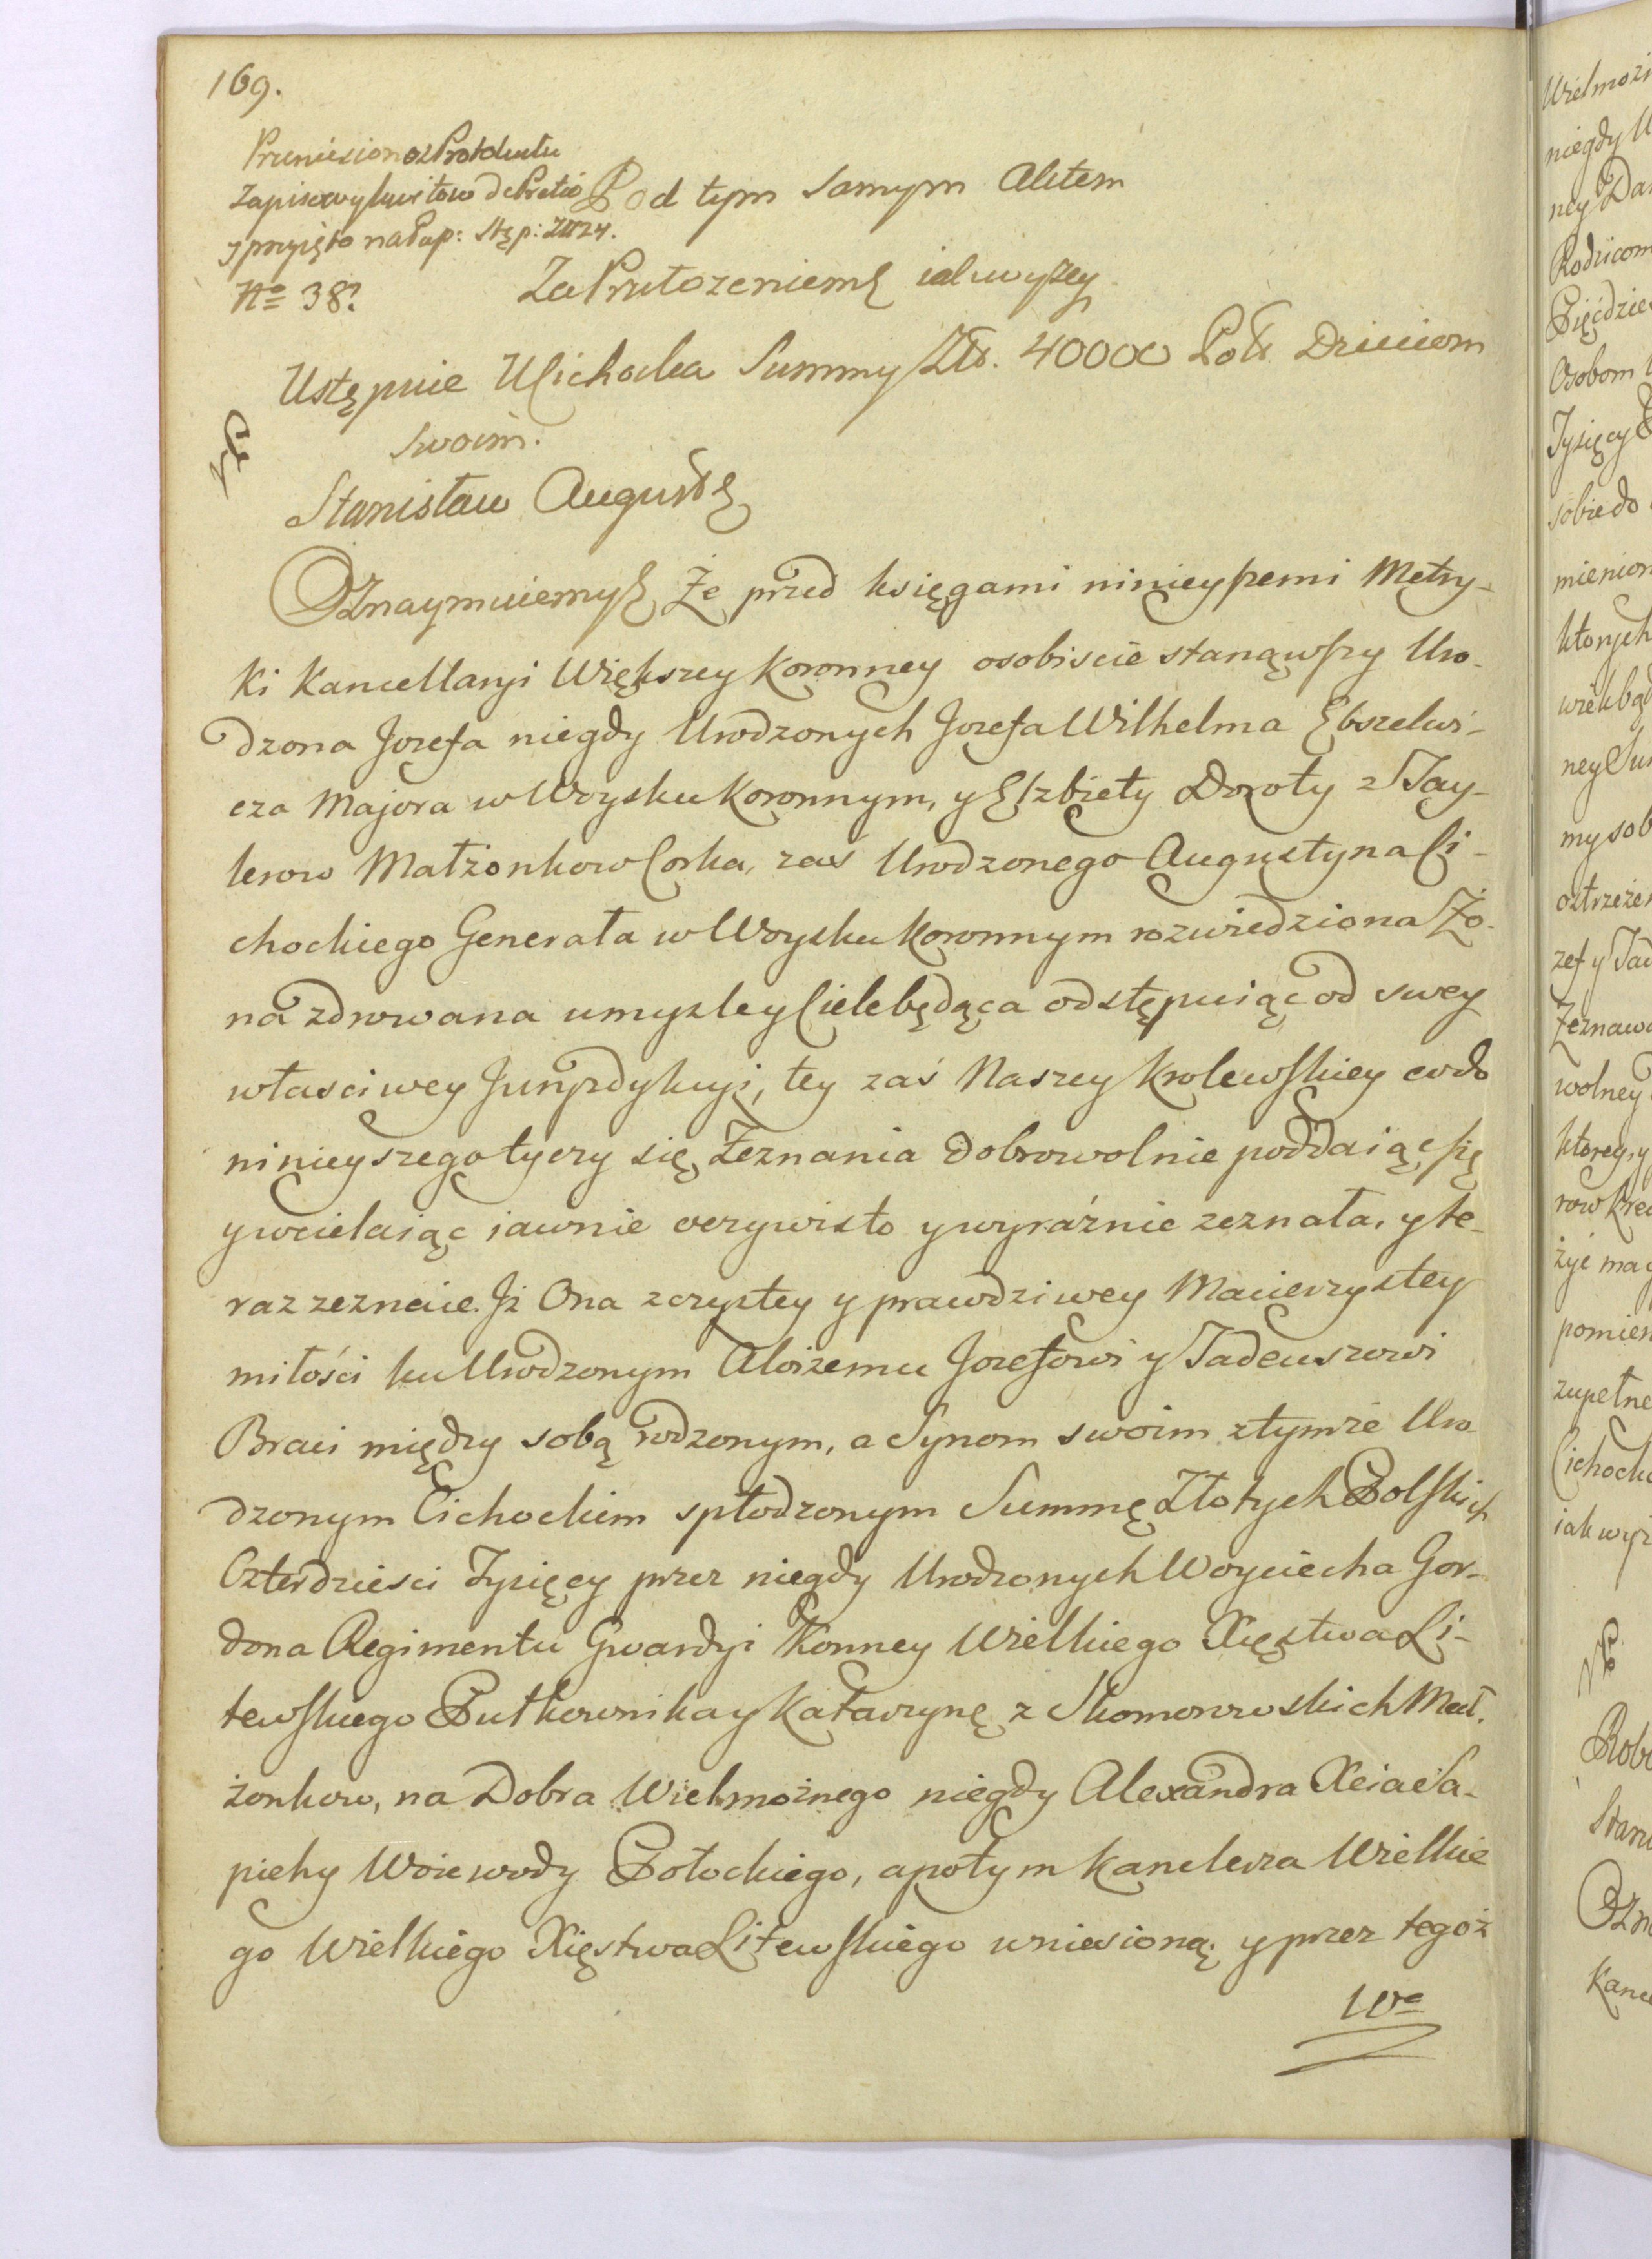 169.
Przeniesiono z Protokułu
Zapisowy kwitow dekretio
y przyięto na Pap: Stęp: Zł 24.
No 38.
Pod tym samym Aktem
Za Przełożeniem iak wyżey
Ustępuie Cichocka Summy Złt. 40000 Pols Dzieciom
Swoim.
Stanisław August
Oznaymuiemy Że przed księgami ninieyszemi Metry-
ki Kancellaryi Większey Koronney osobiscie stanąwszy Uro-
dzona Jozefa niegdy Urodzonych Jozefa Wilhelma Ebszelwi-
cza Majora w Woysku Koronnym, y Elzbiety Doroty z Tay-
lerow Małżonkow Corka, zaś Urodzonego Augustyna Ci-
chockiego Generała w Woysku Koronnym rozwiedziona Żo-
na zdrowana umysle y Ciele będąca odstępuiąc od swey
własciwey Juryzdykcyi, tey zaś Naszey Krolewskiey co do
ninieyszego tyczy się Zeznania dobrowolnie poddaiąc się
y wcielaiąc iawnie oczywisto y wyraźnie zeznała, y te-
raz zeznaie. Iż Ona z czystey y prawdziwey Macierzystey
miłości ku Urodzonym Aloizemu Jozefowi y Tadeuszowi
Braci między sobą rodzonym, a Synom swoim z tymże Uro-
dzonym Cichockiem spłodzonym Summę Złotych Polskich
Czterdziesci Tysięcy przez niegdy Urodzonych Woyciecha Gor-
dona Regimentu Gwardyi Konney Wielkiego Xięstwa Li-
tewskiego Pułkownika y Katarzynę z Skomorowskich Mał-
żonkow, na Dobra Wielmożnego niegdy Alexandra Xcia Sa-
piehy Woiewody Połockiego, a potym Kanclerza Wielkie
go Wielkiego Xięstwa Litewskiego wniesioną; y przez tegoż
We
Wielmoż
niegdy U
ney Dan
Rodzicom
Pięćdzie
Osobom
Tysięcy
sobie do
mienion
ktorych
wiek bąd
ney Su
my sob
ostrzeże
zef y Tad
Zeznawa
wolney
ktorey, y
row kre
żyć ma
pomien
zupełne
Cichock
iak wyż
Robo
Stani
Ozn
Kance